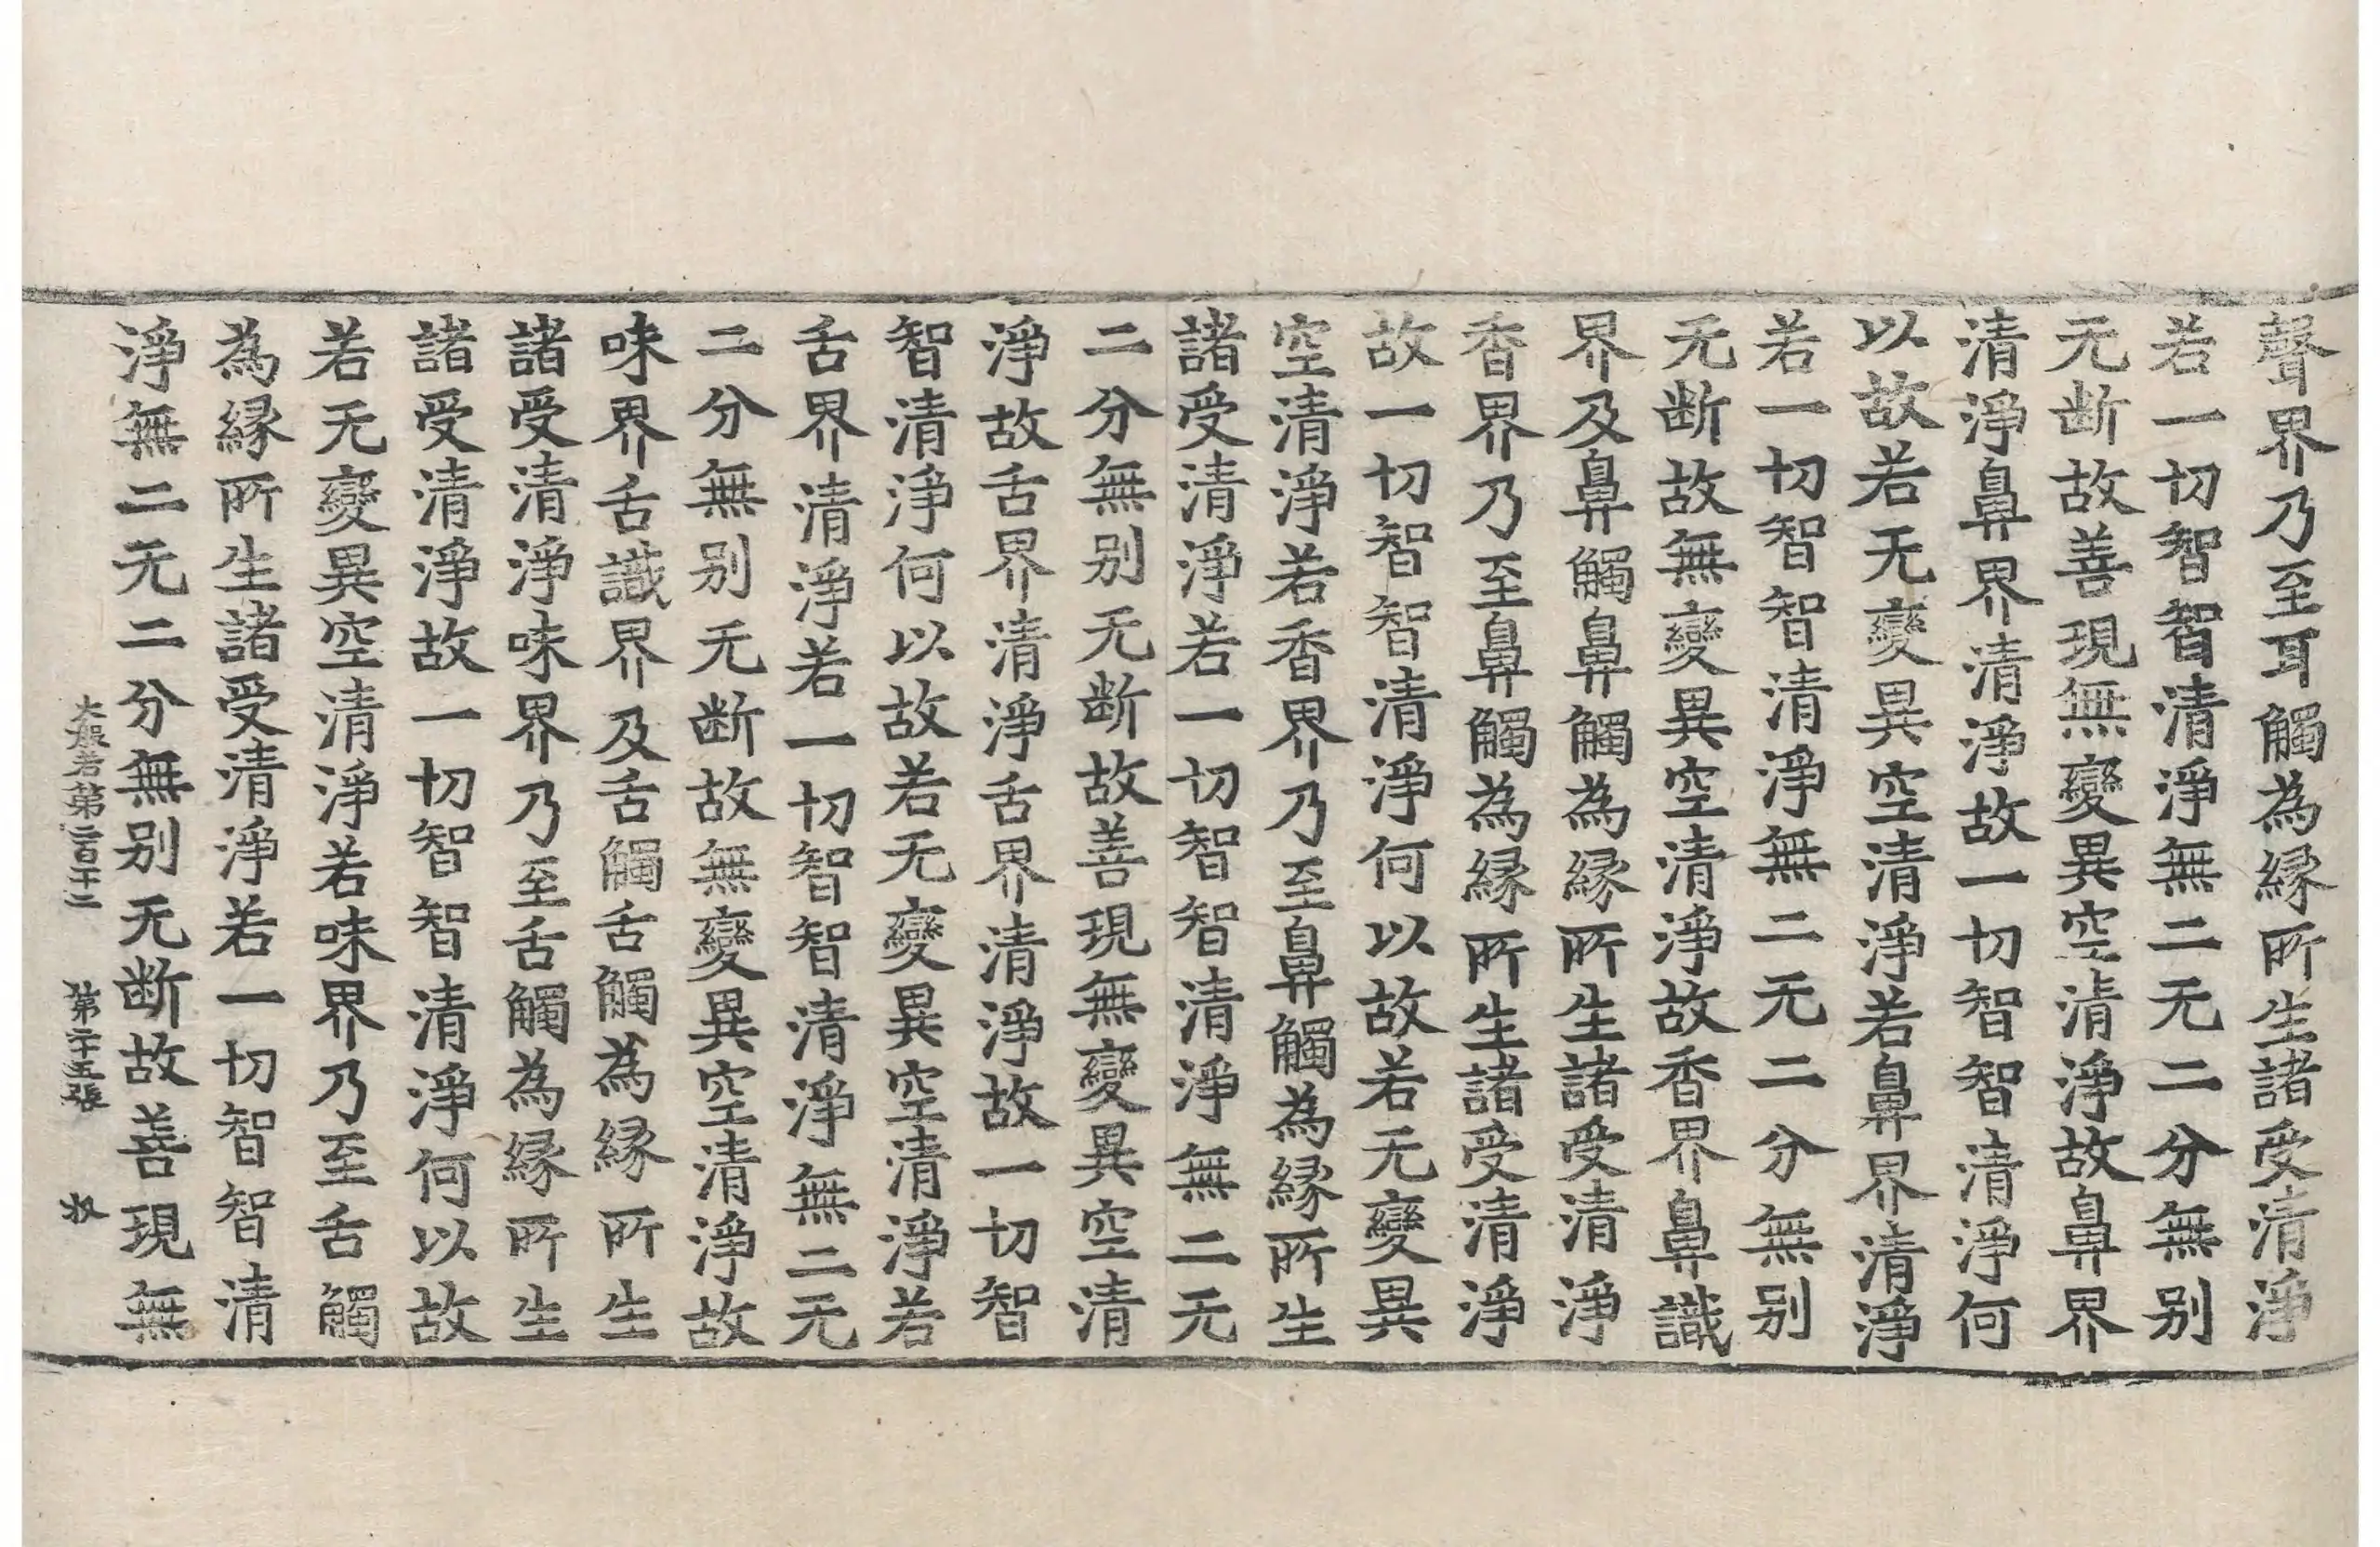 聲界乃至耳觸為縁所生諸受清淨
若一切智智清淨無二无二分無别
无断故善現無變異空清淨故鼻界
清淨鼻界清淨故一切智智清淨何
以故若无變異空清淨若鼻界清淨
若一切智智清淨無二无二分無别
无断故無變異空清淨故香界鼻識
界及鼻觸鼻觸為縁所生諸受清淨
香界乃至鼻觸為縁所生諸受清淨
故一切智智清淨何以故若无變異
空清淨若香界乃至鼻觸為縁所生
諸受清淨若一切智智清淨無二无
二分無别无断故善現無變異空清
淨故舌界清淨舌界清淨故一切智
智清淨何以故若无變異空清淨若
舌界清淨若一切智智清淨無二无
二分無别无断故無變異空清淨故
味界舌識界及舌觸舌觸為縁所生
諸受清淨味界乃至舌觸為縁所生
諸受清淨故一切智智清淨何以故
若无變異空清淨若味界乃至舌觸
為縁所生諸受清淨若一切智智清
淨無二无二分無别无断故善現無
大般若第二百十二 第二十五張